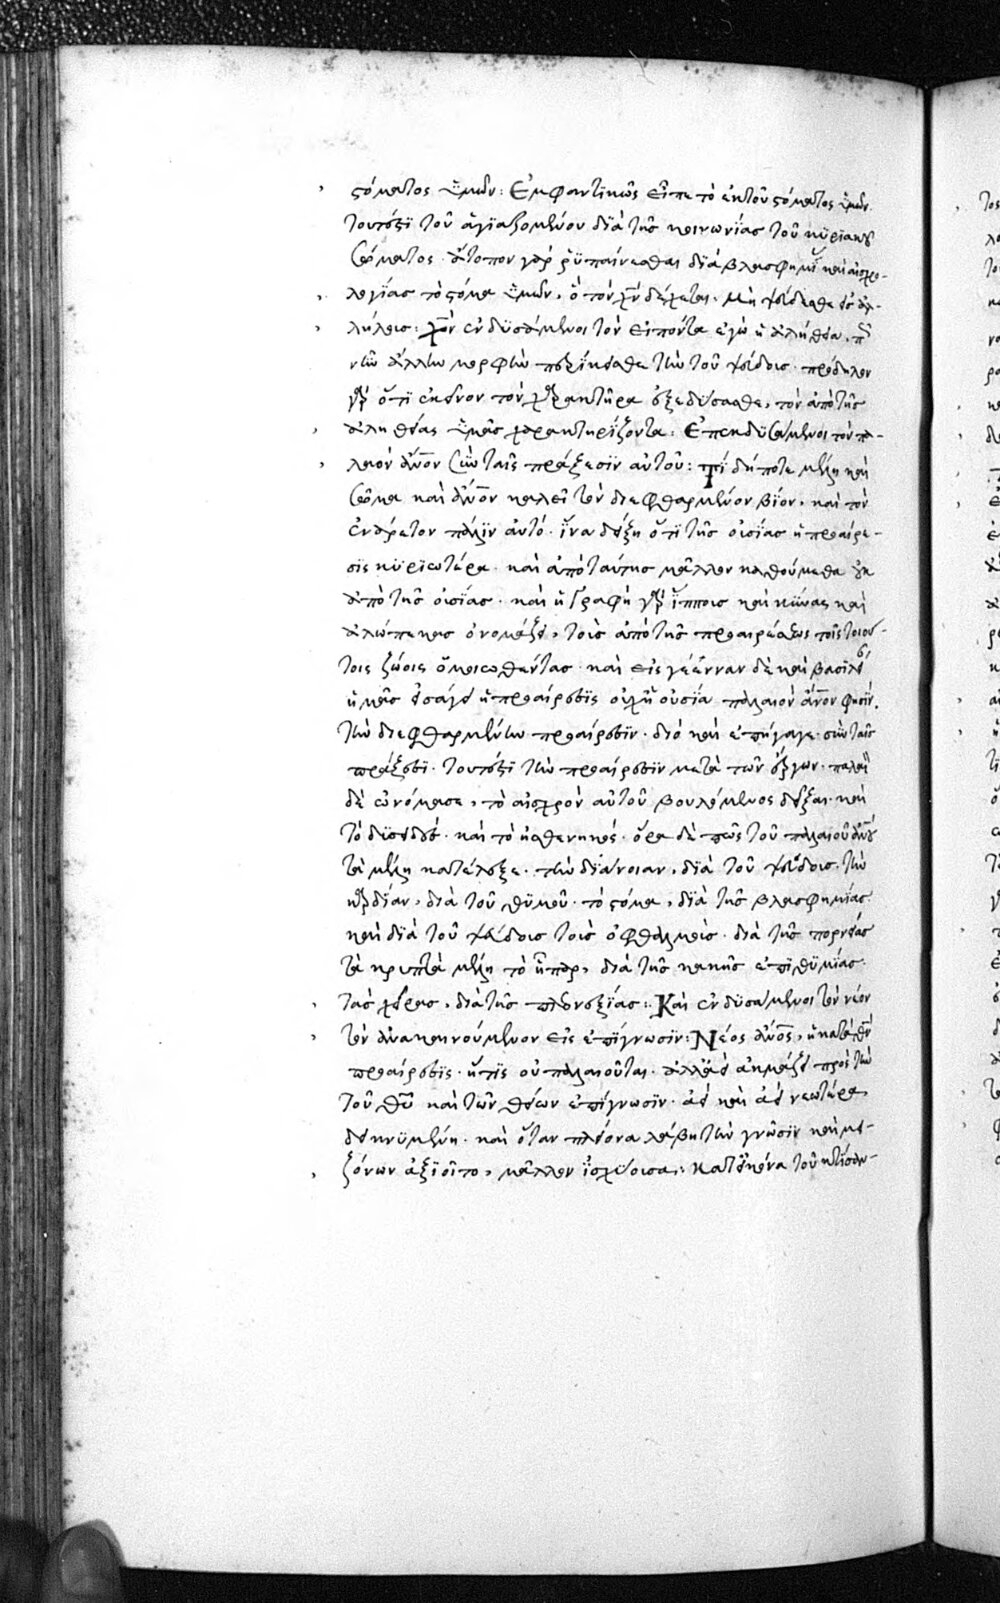 στόματος ὑμῶν: Ἐμφαντικῶς εἶπε τὸ ἐκ τοῦ στόματος ὑμῶν
τουτέστι τοῦ ἁγιαζομένου διὰ τῆς κοινωνίας τοῦ κυριακοῦ
σώματος· ἄτοπον γὰρ ῥυπαίνεσθαι διὰ βλασφημί καὶ αἰσχρο-
λογίας τὸ στόμα ὑμῶν, ὃ τὸν χ̅ν̅ δέχεται. Μὴ ψεύδεσθε εἰς ἀλ-
λήλους: χ̅ν̅ ἐνδυσάμενοι τὸν εἰπόντα ἐγὼ ἡ ἀλήθεια,
τὴν ἄλλην μορφὴν περίκεισθε τὴν τοῦ ψεύδους· πρόδηλον
γὰρ ὅτι ἐκεῖνον τὸν χαρακτῆρα ἐξεδύσασθε, τὸν ἀπὸ τῆς
ἀληθείας ὑμᾶς χαρακτηρίζοντα: Ἐπενδυσάμενοι τὸν πα-
λαιὸν ἄν̅ο̅ν̅ σὺν ταῖς πράξεσιν αὐτοῦ: Τί δήποτε μέλη καὶ
σῶμα καὶ ἄν̅ο̅ν̅ καλεῖ τὸν διεφθαρμένον βίον, καὶ τὸν
ἐνάρετον πάλιν αὐτό· ἵνα δείξῃ ὅτι τῆς οὐσίας ἡ προαίρε-
σις κυριωτέρα· καὶ ἀπὸ ταύτης μᾶλλον καλούμεθα οὐκ
ἀπὸ τῆς οὐσίας· καὶ ἡ γραφὴ γὰρ ἵππους καὶ κύνας καὶ
ἀλώπεκας ὀνομάζει, τοὺς ἀπὸ τῆς προαιρέσεως τοῖς τοιού-
τοις ζώοις ὁμοιωθέντας· καὶ εἰς γέενναν δὲ καὶ βασιλεί
ἡμᾶς εἰσάγει ἡ προαίρεσις οὐχ ἡ οὐσία παλαιὸν ἄν̅ο̅ν̅ φησίν,
τὴν διεφθαρμένην προαίρεσιν· διὸ καὶ ἐπήγαγε· σὺν ταῖς
πράξεσι· τουτέστι τὴν προαίρεσιν μετὰ τῶν ἔργων· παλαιὸν
δὲ ὠνόμασε, τὸ αἰσχρὸν αὐτοῦ βουλόμενος δεῖξαι· καὶ
τὸ δυσειδές· καὶ τὸ ἀσθενηκός· ὅρα δὲ πῶς τοῦ παλαιοῦ ἀν̅ο̅υ̅
τὰ μέλη κατέλεξε· τὴν διάνοιαν, διὰ τοῦ ψεύδους· τὴν
καρδίαν, διὰ τοῦ θυμοῦ· τὸ στόμα, διὰ τῆς βλασφημίας·
καὶ διὰ τοῦ ψεύδους τοὺς ὀφθαλμοὺς· διὰ τῆς πορνείας
τὰ κρυπτὰ μέλη τὸ ἧπαρ, διὰ τῆς κακῆς ἐπιθυμίας·
τὰς χεῖρας, διὰ τῆς πλεονεξίας: Καὶ ἐνδυσάμενοι τὸν νέον
τὸν ἀνακαινούμενον εἰς ἐπίγνωσιν: Νέος ἄν̅ο̅ς̅, ἡ κατὰ θ̅ν̅
προαίρεσις· ἥτις οὐ παλαιοῦται· ἀλλ' ἀεὶ ἀκμάζει πρὸς τὴν
τοῦ θ̅υ̅ καὶ τῶν θείων ἐπίγνωσιν· ἀεὶ καὶ ἀεὶ νεωτέρα
δεικνυμένη· καὶ ὅταν πλείονα λάβῃ τὴν γνῶσιν καὶ μει-
ζόνων ἀξιοῖτο, μᾶλλον ἰσχύουσα: κατ' εἰκόνα τοῦ κτίσαν-